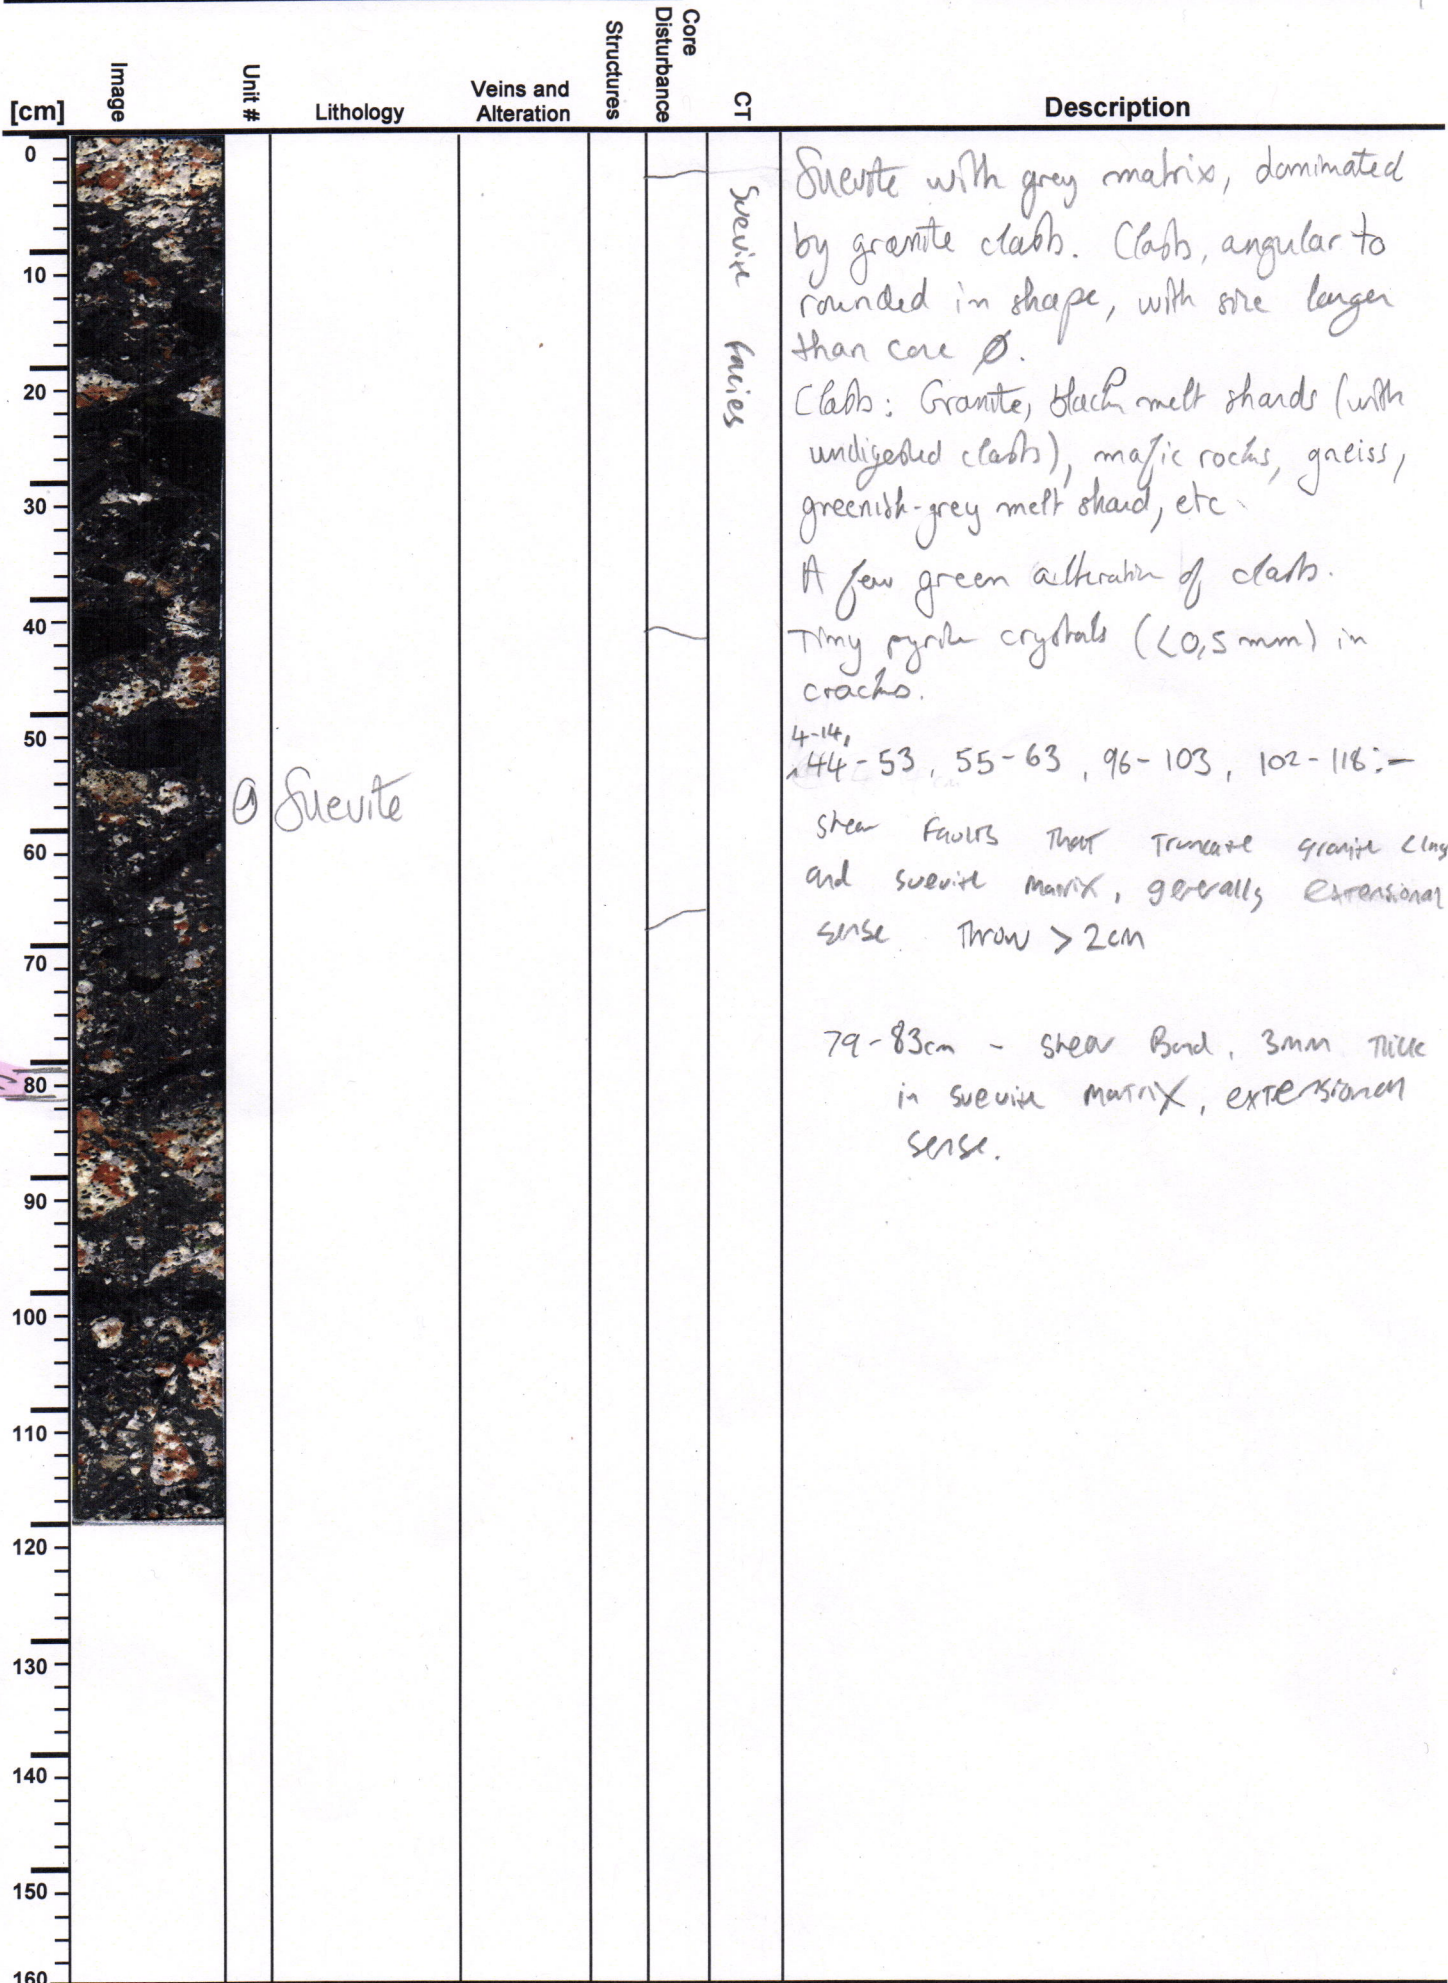 [cm]
Image
Unit #
Lithology
Veins and
Alteration
Structures
Core
Disturbance
CT
Description
0
10
20
30
40
50
60
70
80
90
100
110
120
130
140
150
160
① Suevite
Suevite facies
Suevite with grey matrix, dominated
by granite clasts. Clasts, angular to
rounded in shape, with size larger
than core Ø.
Clasts: Granite, black melt shards (with
undigested clasts), mafic rocks, gneiss,
greenish-grey melt shard, etc.
A few green alteration of clasts.
Tiny pyrite crystals (<0,5 mm) in
cracks.
4-14,
44-53, 55-63, 96-103, 102-118:-
shear faults that truncate granite clasts
and suevite matrix, generally extensional
sense throw > 2cm
79-83cm - shear Band, 3mm thick
in suevite matrix, extensional
sense.